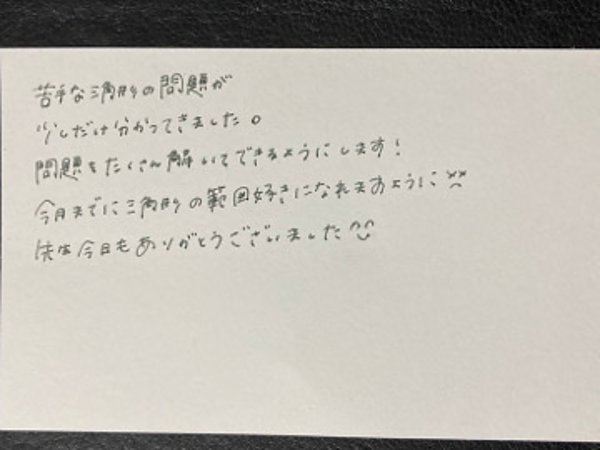 苦手な三角形の問題が
少しだけ分かってきました。
問題をたくさん解いてできるようにします！
今月までに三角形の範囲好きになれますように××
先生今日もありがとうございました^^